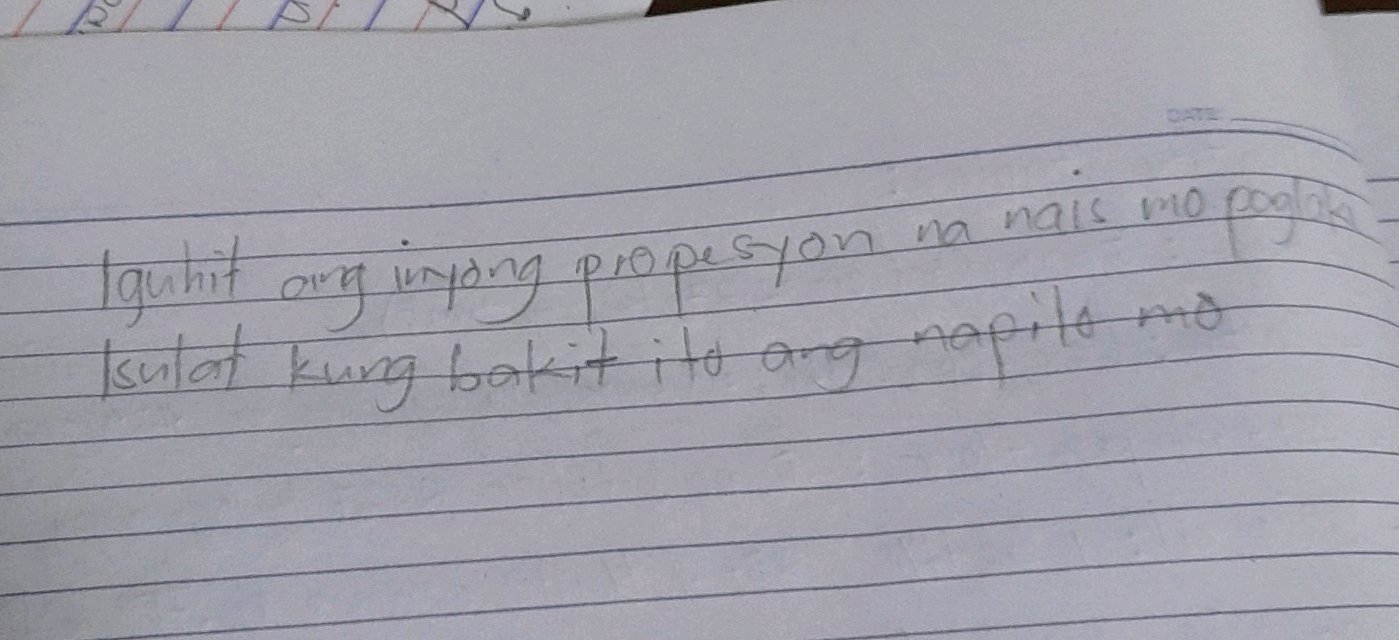 DATE
Iguhit ang inyong propesyon na nais mo paglaki
Isulat kung bakit ito ang napili mo